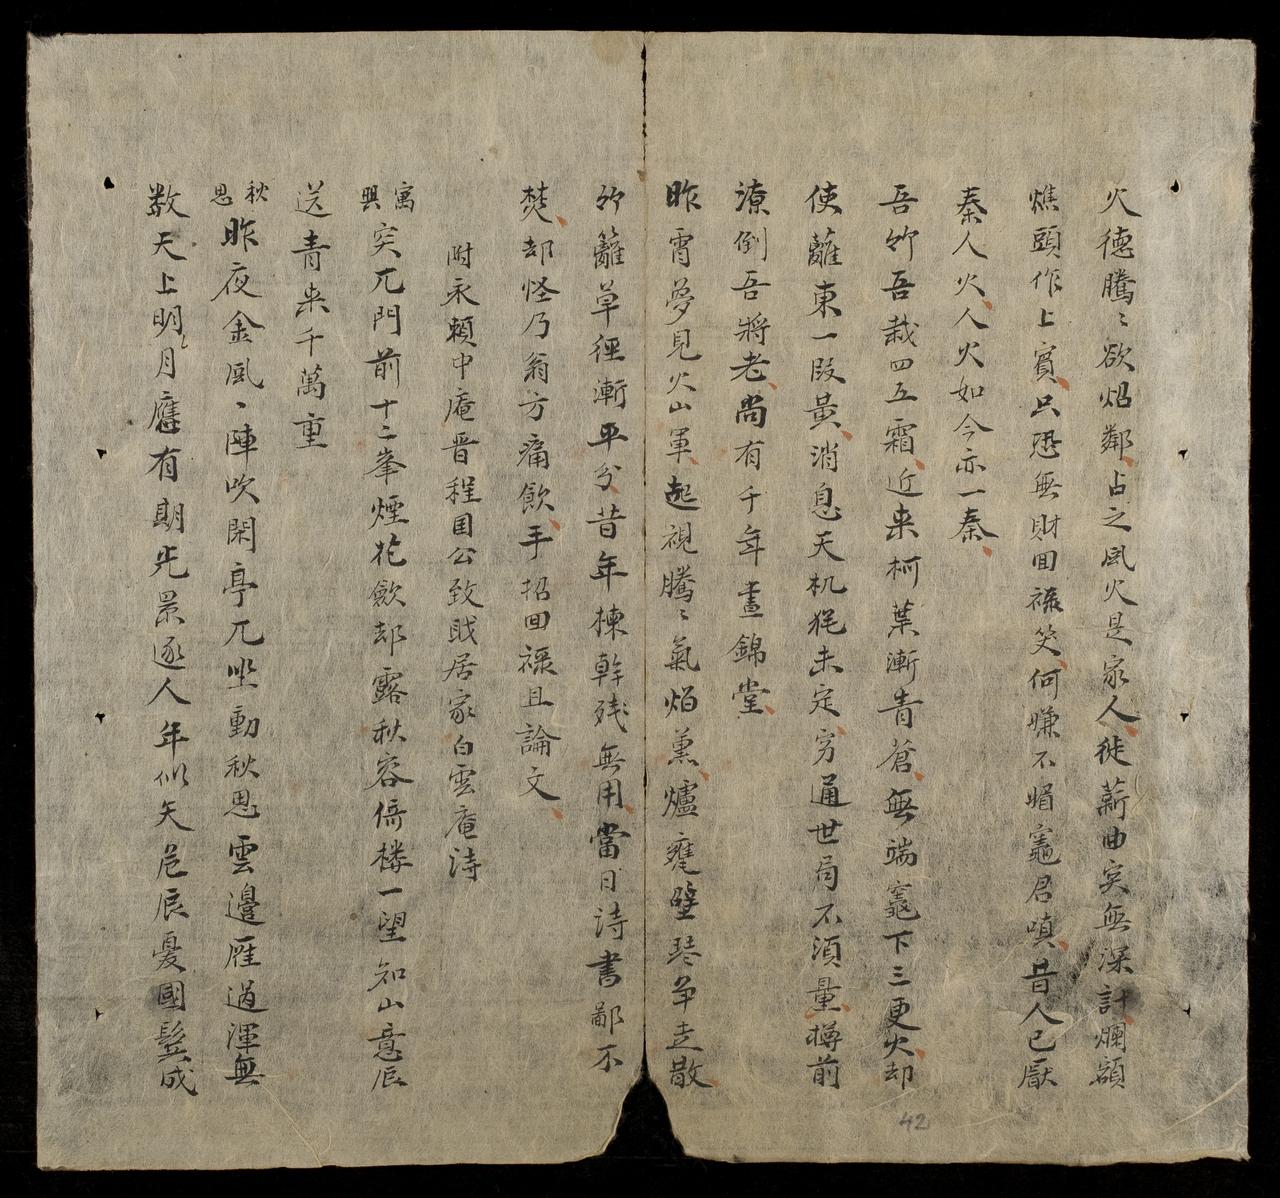 火德騰〻欲炤鄰占之風火是家人徙薪曲突無深計爛額
燋頭作上賓只恐無財回祿笑何嫌不媚竈君嗔昔人已厭
秦人火人火如今亦一秦
吾竹吾栽四五霜近来柯葉漸青蒼無端竈下三更火却
使蘺東一段黃消息天机㹺未定穷通世局不須量樽前
潦倒吾將老尚有千年晝錦堂
昨宵夢見火山軍起視騰〻氣焰薰爐瓮壁琴争走散
竹籬草徑漸平分昔年楝幹残無用當日詩書鄙不
焚却怪乃翁方痛飲手招回祿且論文
附永賴中庵晋程国公致戝居家白雲庵诗
寓興 突兀門前十二峯煙花歛却露秋容倚楼一望知山意辰
送青来千萬重
秋思 昨夜金風丶陣吹閑亭兀坐動秋思雲邊雁過渾無
数天上明月應有期光景逐人年似矢危辰憂國髩成
42